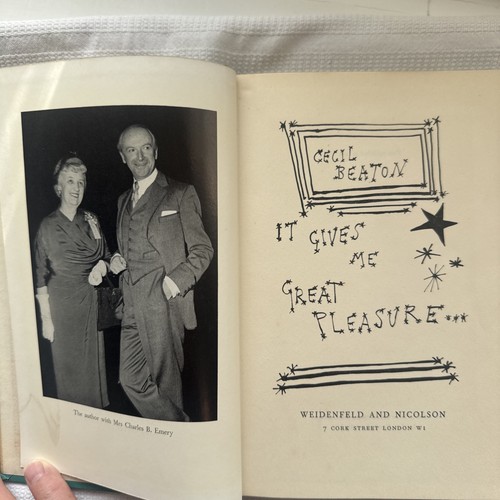 The author with Mrs Charles B. Emery
CECIL
BEATON
IT GIVES
ME
GREAT
PLEASURE...
WEIDENFELD AND NICOLSON
7 CORK STREET LONDON W1